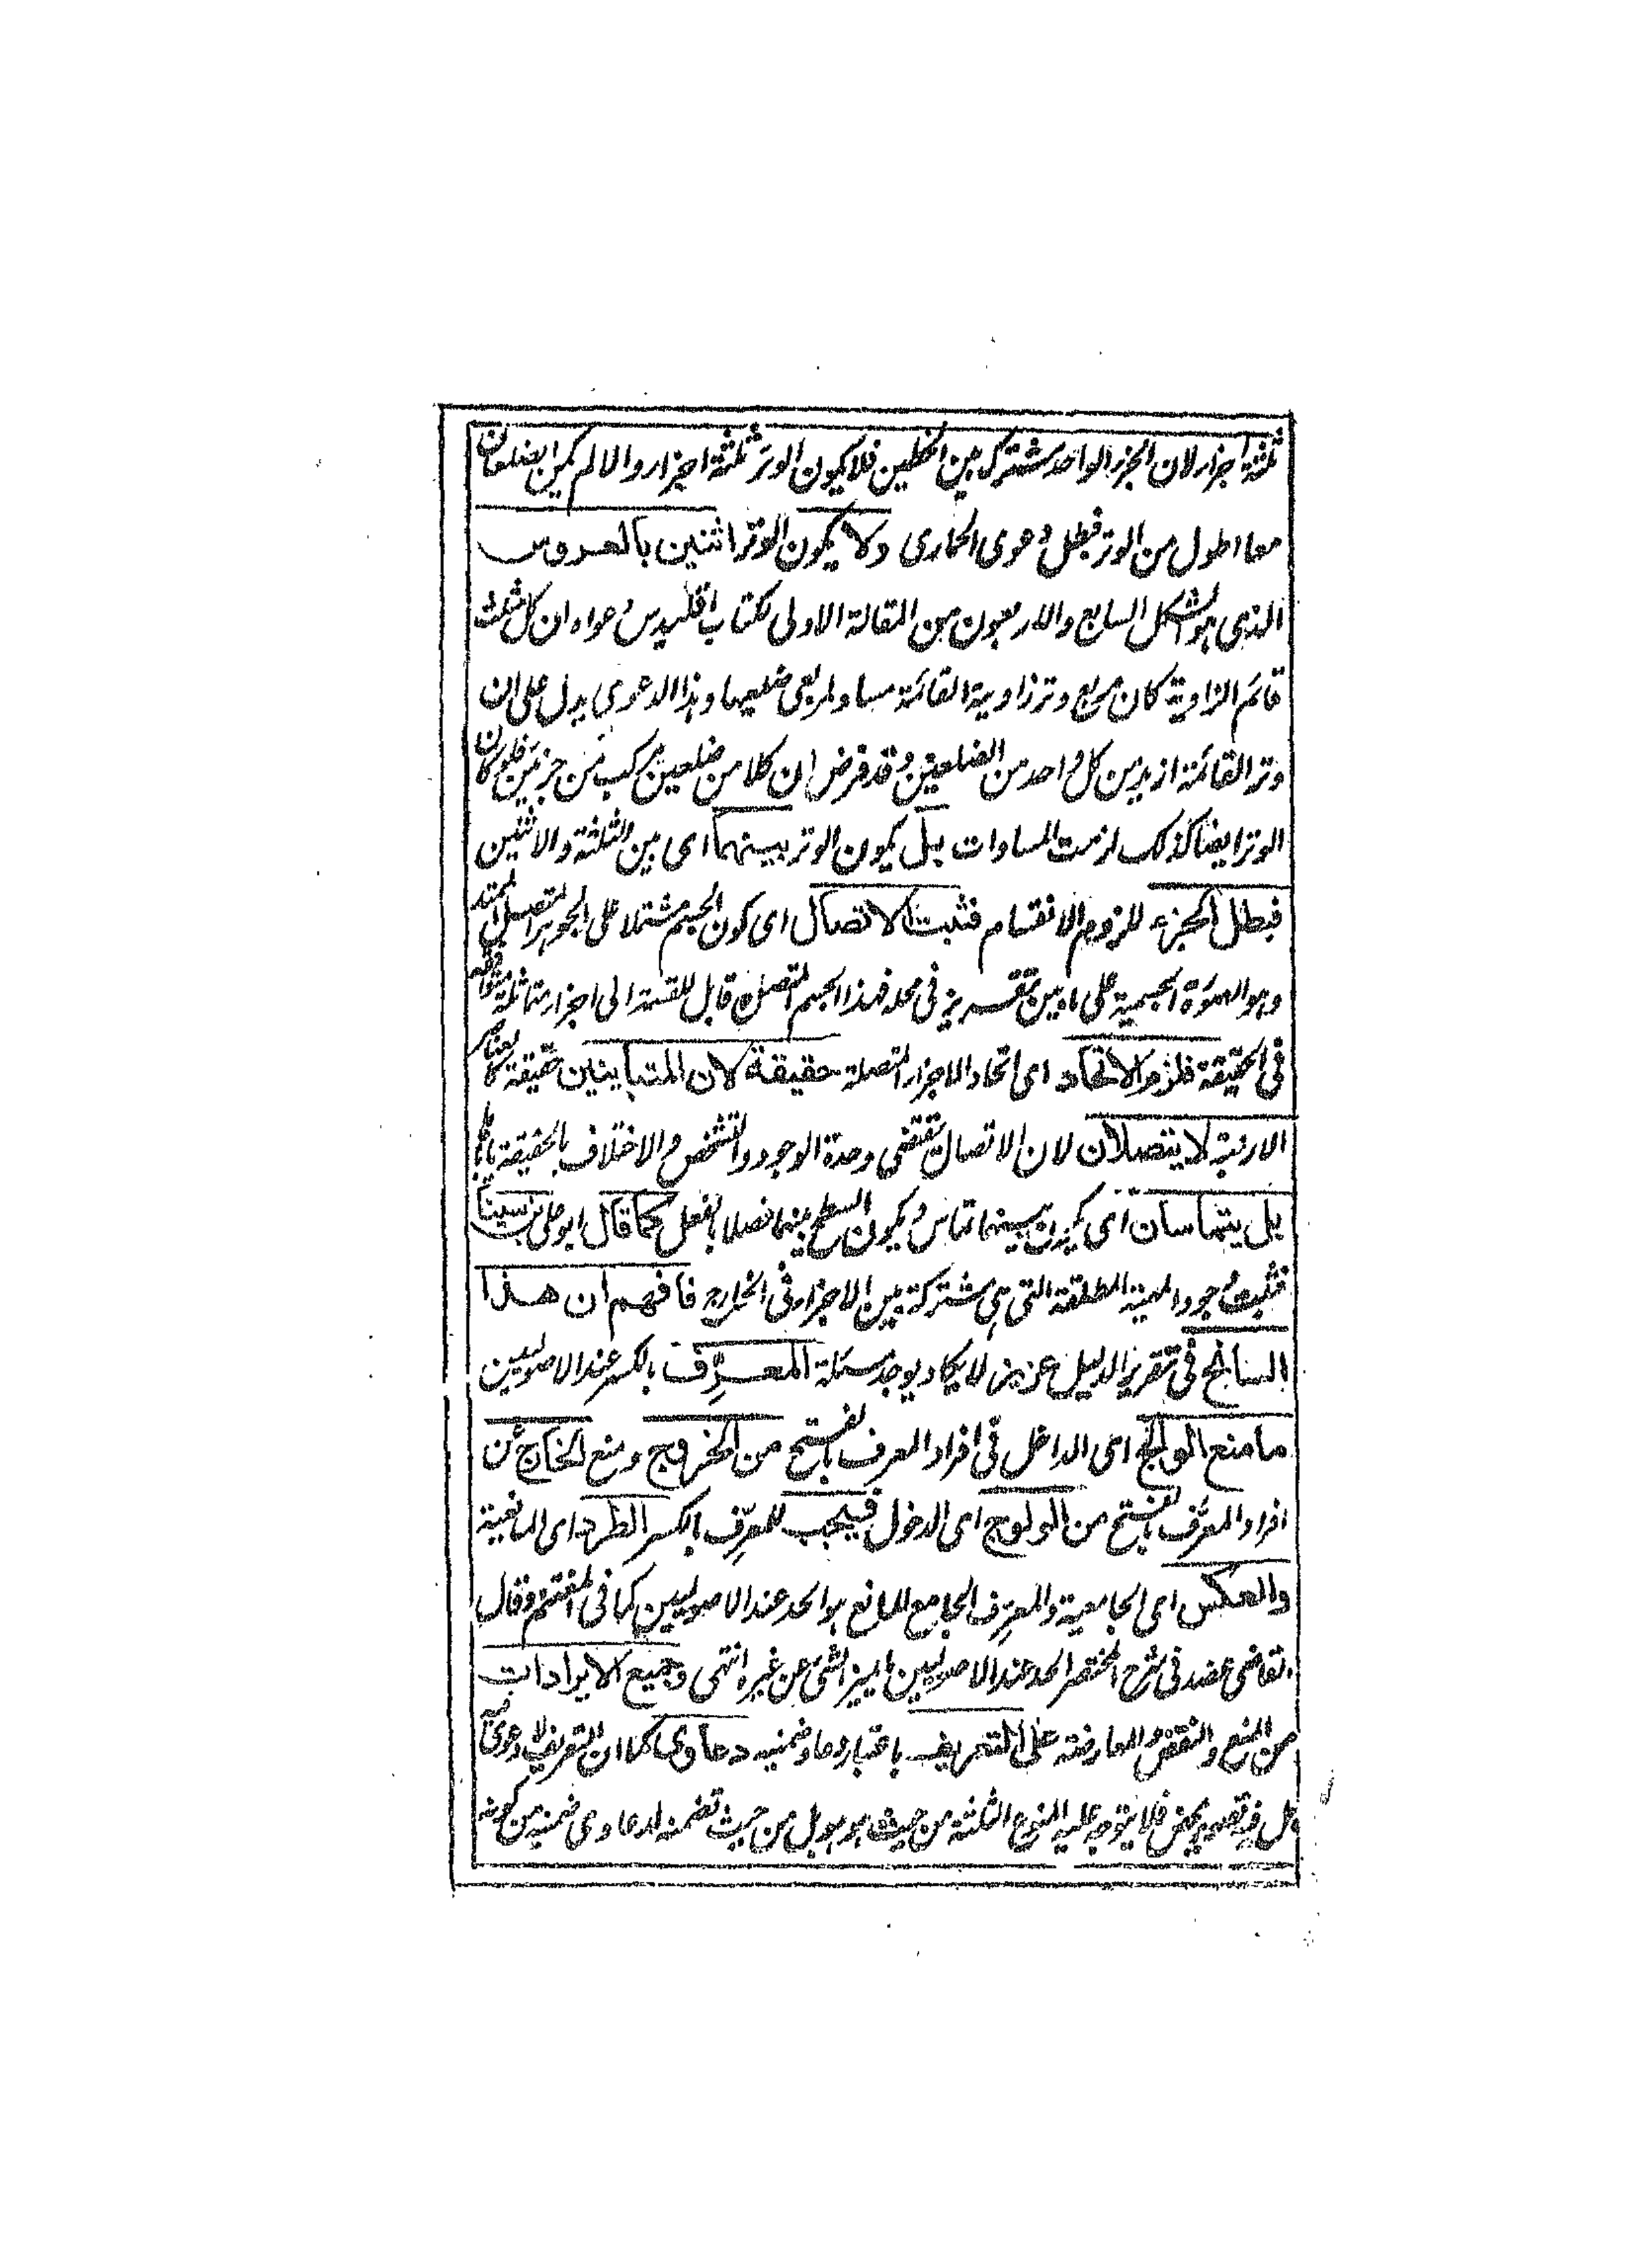 ثلثة اجزاء لان الجزء الواحد مشترك بين الخطين فلا يكون الوتر ثلثة اجزاء والا لم يكن الضلعان
معا اطول من الوتر فبطل دعوى الحمارى ولا يكون الوتر اثنين بالعروس
الذى هو الشكل السابع والاربعون من المقالة الاولى لكتاب اقليدس دعواه ان كل مثلث
قائم الزاوية كان مربع وتر زاوية القائمة مساو لمربعى ضلعيها وهذا الدعوى يدل على ان
وتر القائمة ازيد من كل واحد من الضلعين وقد فرض ان كلا من ضلعين مركب من جزئين فلو كان
الوتر ايضا كذلك لزمت المساوات بل يكون الوتر بينهما اى بين الثلثة والاثنين
فبطل الجزء للزوم الانقسام فثبت الاتصال اى كون الجسم مشتملا على الجوهر المتصل الممتد
وهو الصورة الجسمية على ما بين تقريره فى محله فهذا الجسم المتصل قابل للقسمة الى اجزاء متماثلة متوافقة
فى الحقيقة فلزم الاتحاد اى اتحاد الاجزاء المتصلة حقيقة لان المتباينين حقيقة
لا يتصلان لان الاتصال يقتضى وحدة الوجود والتشخص والاختلاف بالحقيقة
بل يتماسان اى يكون بينهما تماس ويكون السطح بينهما فصلا بالفعل كما قال ابو على بن سينا
فثبت وجود المهية المطلقة التى هى مشتركة بين الاجزاء فى الخارج فافهم ان هذا
السانح فى تقرير الدليل عزيز لا يكاد يوجد مسئلة المعرِّف بالكسر عند الاصوليين
ما منع الوالج اى الداخل فى افراد المعرف بالفتح من الخروج ومنع الخارج عن
افراد المعرَّف بالفتح من الولوج اى الدخول فيجب للمعرِّف بالكسر الطرد اى المانعية
والعكس اى الجامعية والمعرِّف الجامع المانع هو الحد عند الاصوليين كما فى المغتنم وقال
القاضى عضد فى شرح المختصر الحد عند الاصوليين ما يميز الشئ عن غيره انتهى وجميع الايرادات
من المنع والنقض والمعارضة على التعريف باعتبار دعاو ضمنية دعاوى كما ان التعريف لا دعوى فيه
بل فيه تصوير محض فلا يتوجه عليه المنوع الثلثة من حيث هو هو بل من حيث تضمنه لدعاوى ضمنية من كونه